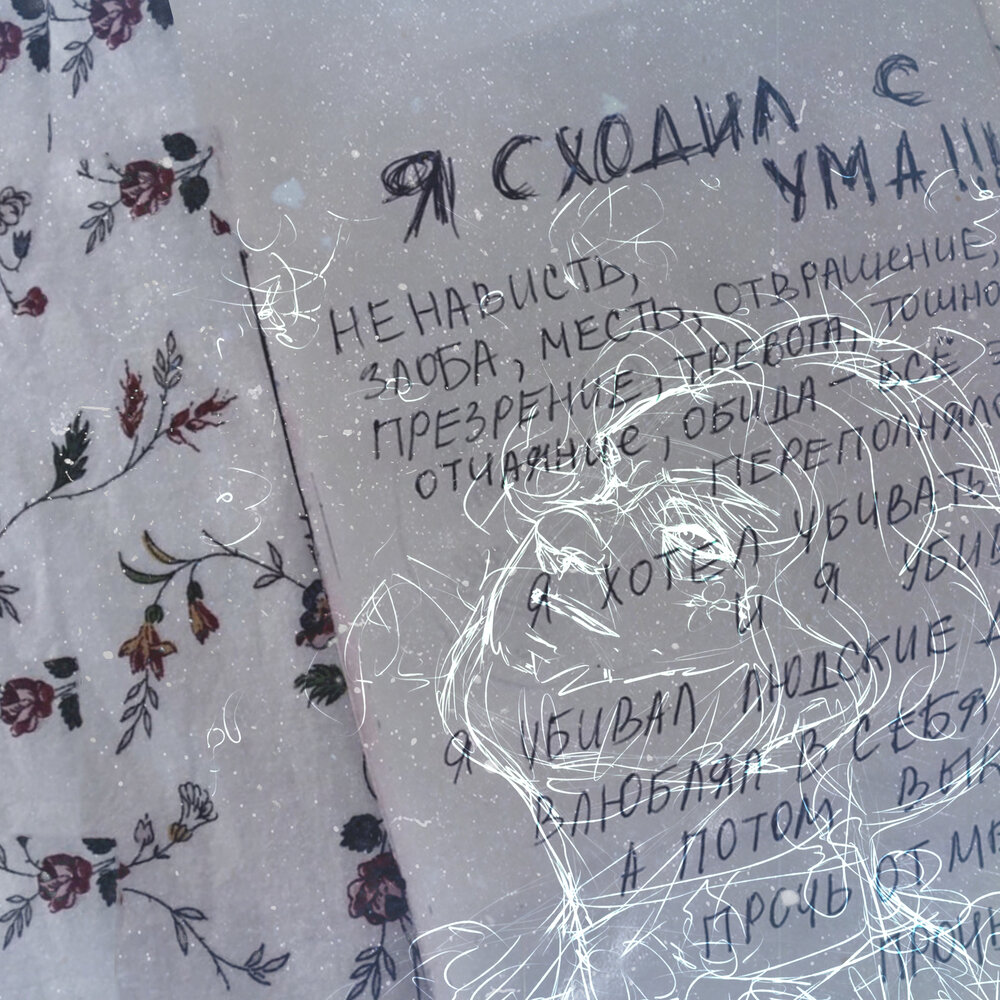 Я СХОДИЛ С
УМА!!!
НЕНАВИСТЬ,
ЗЛОБА, МЕСТЬ, ОТВРАЩЕНИЕ,
ПРЕЗРЕНИЕ, ТРЕВОГА, ТОШНО
ОТЧАЯНИЕ, ОБИДА - ВСЁ Э
ПЕРЕПОЛНЯЛО
Я ХОТЕЛ УБИВАТЬ
И Я УБИ
Я УБИВАЛ ЛЮДСКИЕ
ВЛЮБЛЯЛ В СЕБЯ
А ПОТОМ ВЫК
ПРОЧЬ ОТ МЕ
ПРОЧ